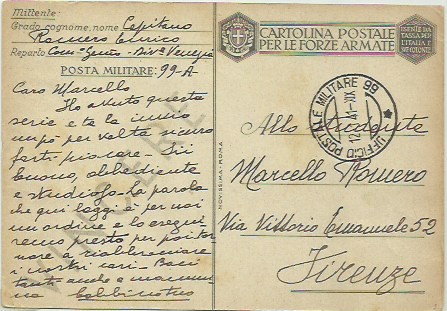 Mittente:
Grado, cognome, nome Capitano
Romero Enrico
Reparto Com. Genio - Div. Venezia
POSTA MILITARE: 99-A
Caro Marcello
Ho avuto questa
serie e te la invio
un pò per volta sicuro
farti piacere - Sii
buono, obbediente
e studioso - La parola
che qui leggi è per noi
un ordine e lo esegui
remo presto per poi tor
nare a riabbracciare
i nostri cari - Baci
tanti anche a mammi
na
CARTOLINA POSTALE
PER LE FORZE ARMATE
ESENTE DA
TASSA PER
L'ITALIA E
LE COLONIE
UFFICIO POSTALE MILITARE 99
12 41-XIX
NOVISSIMA - ROMA
Allo Studente
Marcello Romero
Via Vittorio Emanuele 52
Firenze